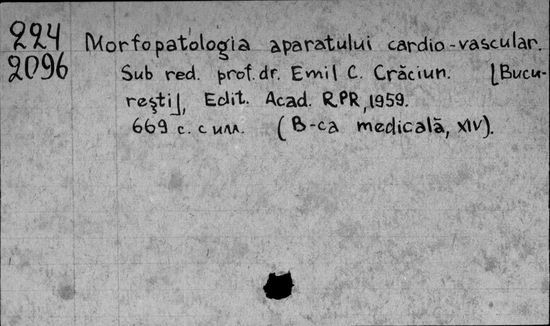 224
2096
Morfopatologia aparatului cardio-vascular.
Sub red. prof. dr. Emil C. Crăciun. [Bucu-
reşti], Edit. Acad. RPR, 1959.
669 с. с илл. (B-ca medicală, XIV).